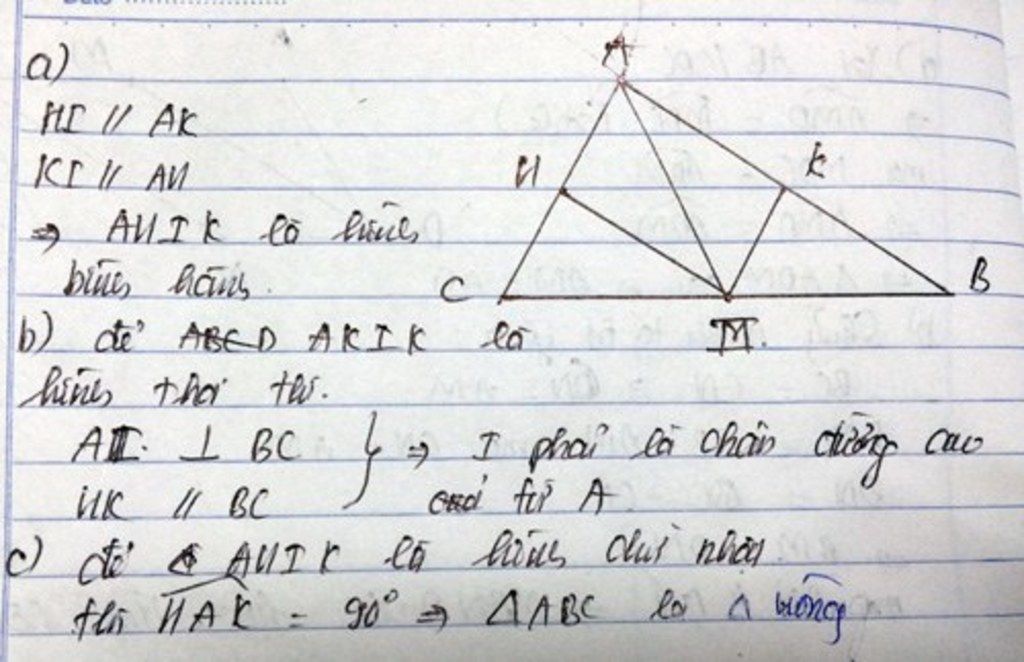 a)
HI // AK
KI // AH
⇒ AHIK là hình
bình hành.
A
H
K
C
B
I
b) để ABCD AKIK là
hình thoi thì.
AI ⊥ BC } ⇒ I phải là chân đường cao
HK // BC từ A
c) để AHIK là hình chữ nhật
thì HAK = 90° ⇒ △ABC là △ vuông